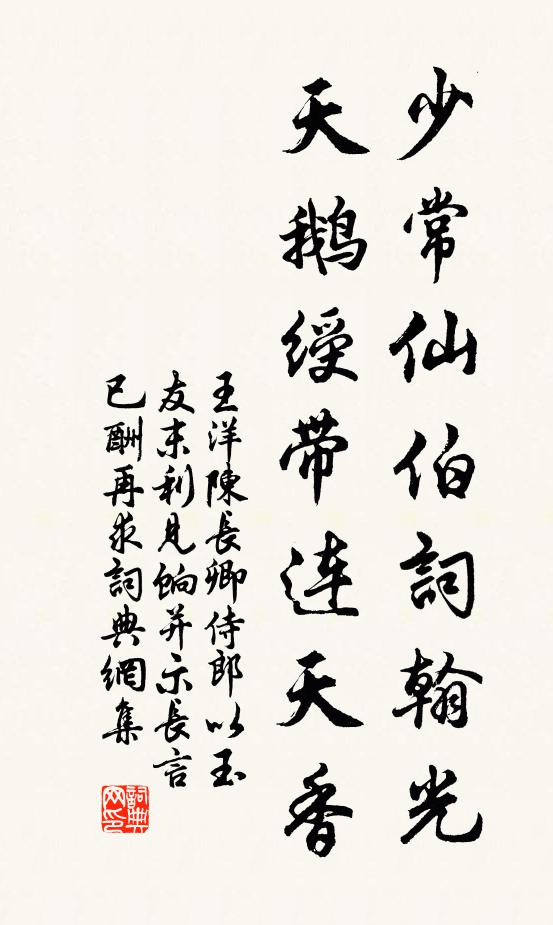 少常仙伯詞翰光
天鹅綬带连天香
王洋陳長卿侍郎以玉
友末利見餉并示長言
已酬再求詞典網集
詞典网印